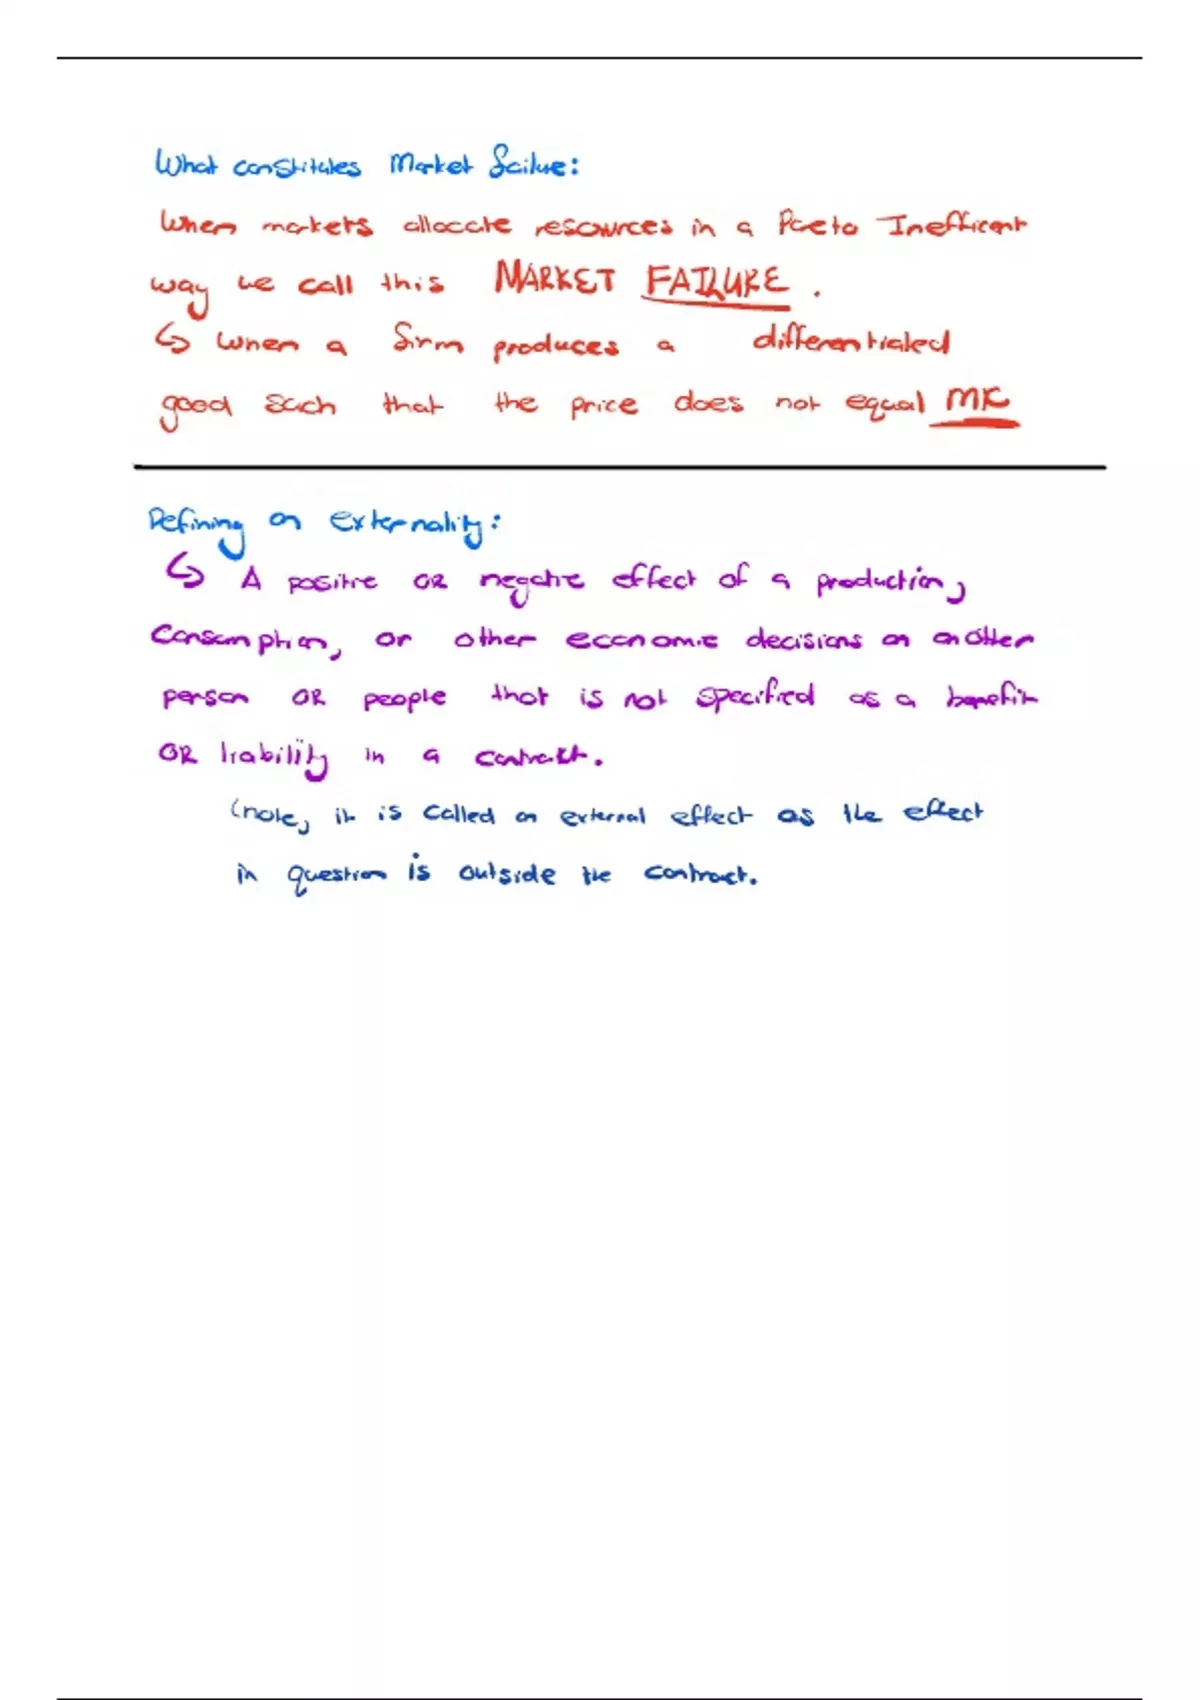 What constitutes Market failure:
When markets allocate resources in a Pareto Inefficent
way we call this MARKET FAILURE.
↳ When a firm produces a differentiated
good such that the price does not equal MC
Defining an externality:
↳ A positive OR negative effect of a production,
Consumption, or other economic decisions on another
person OR people that is not specified as a benefit
OR liability in a contract.
(note, it is called an external effect as the effect
in question is outside the contract.